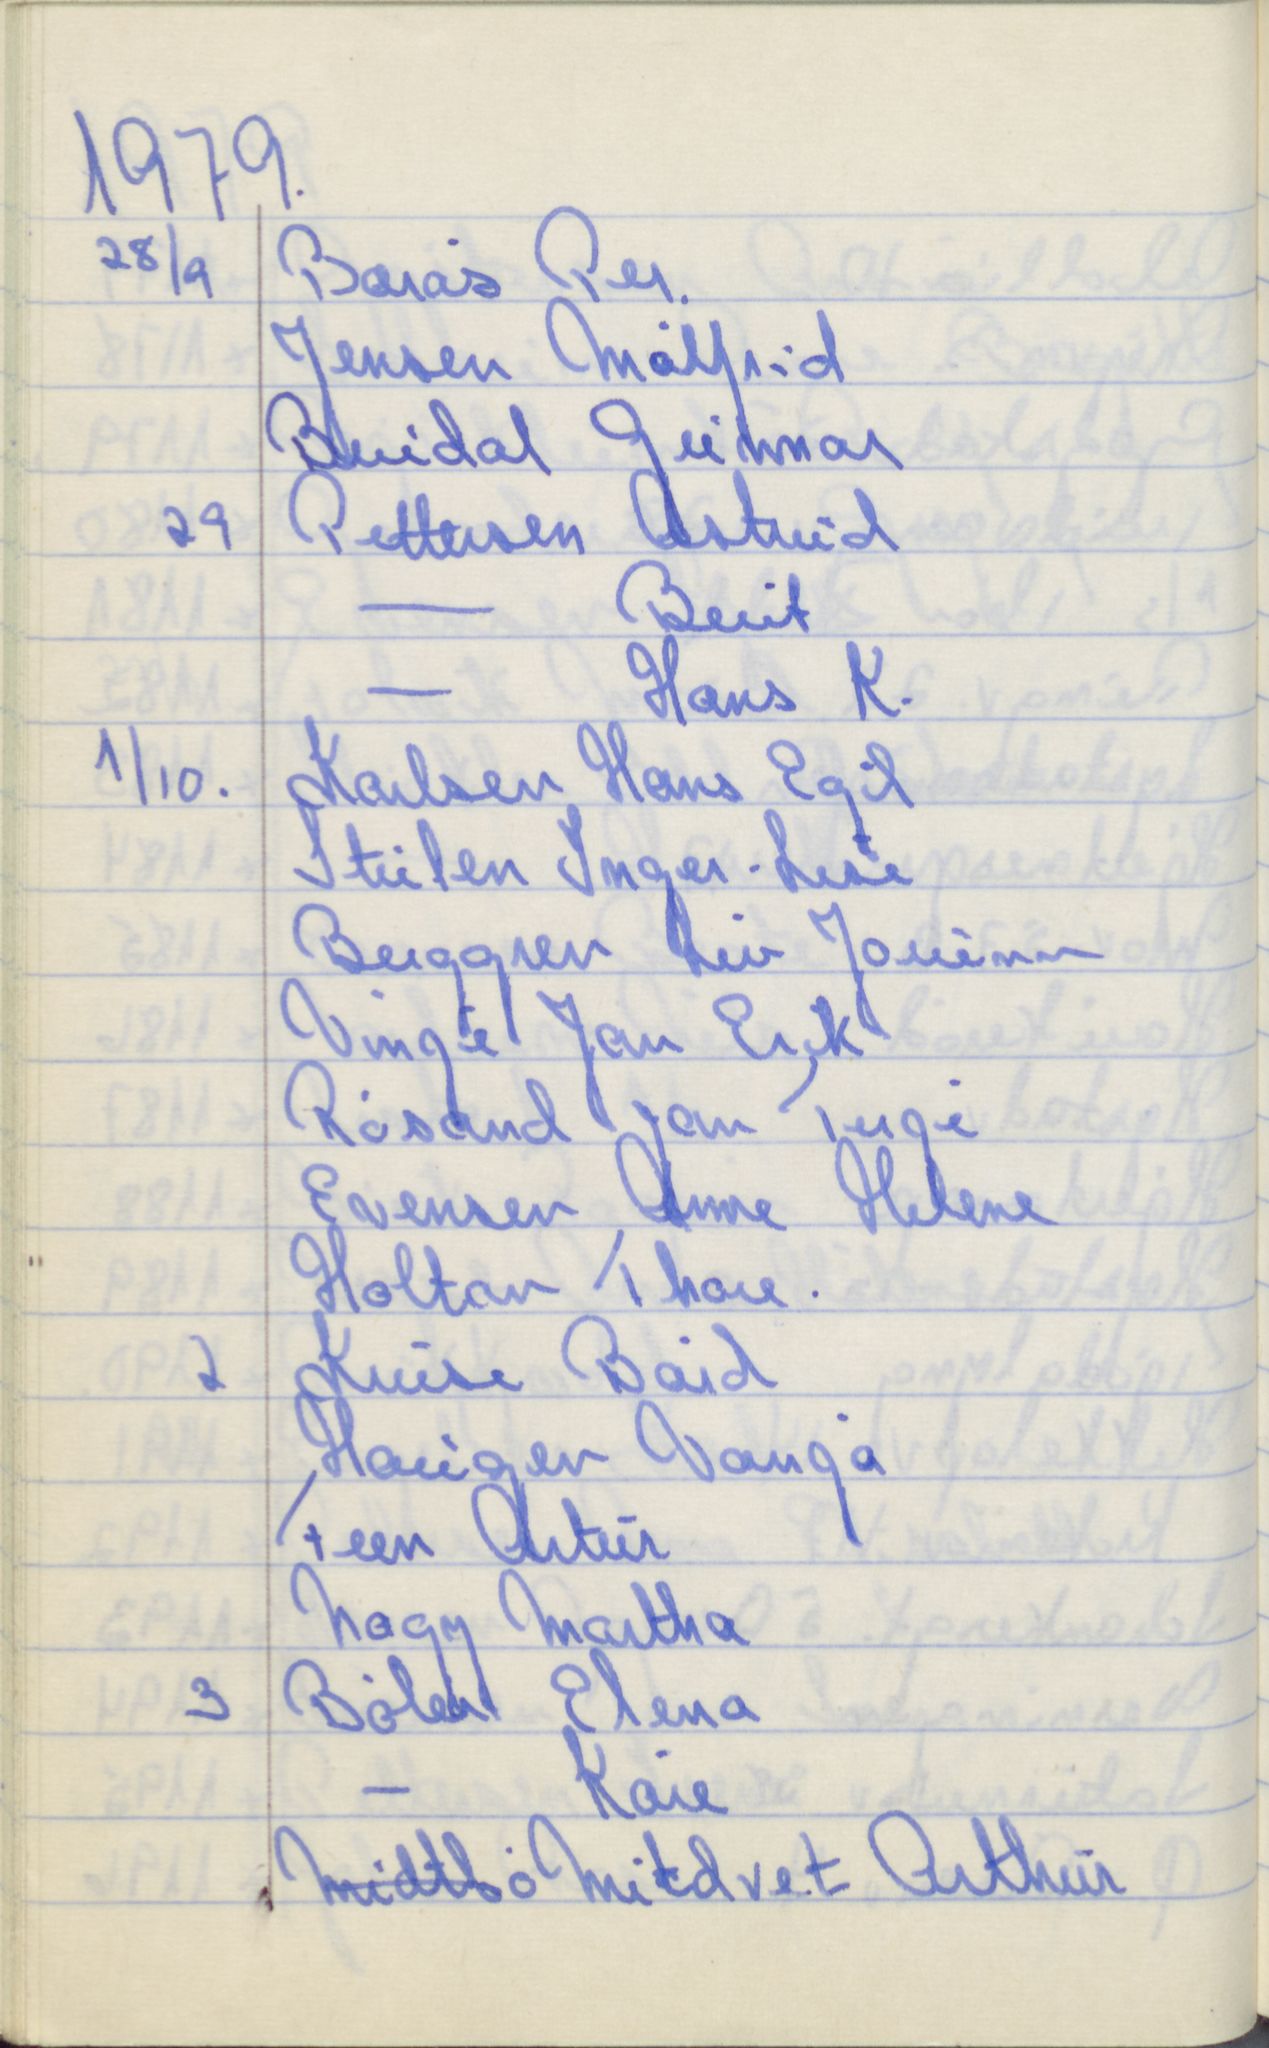 1979.
28/9 Borås Per.
Jensen Målfrid
Bruidal Gunnar
29 Pettersen Astrid
— Berit
— Hans K.
1/10. Karlsen Hans Egil
Stülen Inger-Lise
Berggren Liv Jorunn
Vinge Jan Erik
Røsand Jan Terje
Evensen Anne Helene
Holtan Thore.
2 Kruse Bård
Haugen Vanja
Teen Artur
Nagy Martha
3 Böler Elena
— Kåre
Midtbö Mitdvet Arthur